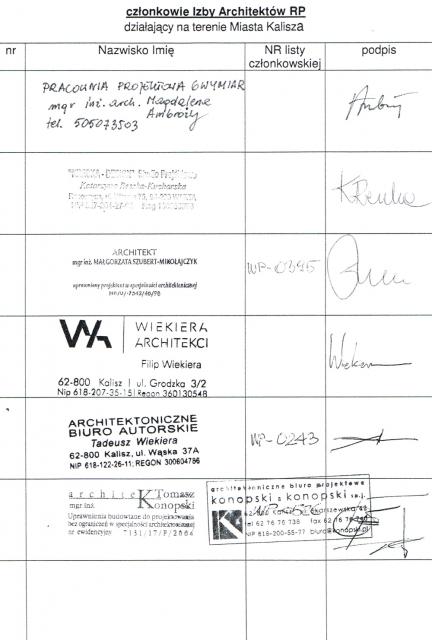 członkowie Izby Architektów RP
działający na terenie Miasta Kalisza
nr Nazwisko Imię NR listy członkowskiej podpis
PRACOWNIA PROJEKTOWA 6WYMIAR
mgr inż. arch. Magdalena
Ambroży
tel. 505073503
Studio Projektowe
ARCHITEKT
mgr inż. MAŁGORZATA SZUBERT-MIKOŁAJCZYK
uprawniony projektant w specjalności architektonicznej
WP-0395
WA WIEKIERA
ARCHITEKCI
Filip Wiekiera
62-800 Kalisz | ul. Grodzka 3/2
Nip 618-207-35-15 | Regon 360130548
ARCHITEKTONICZNE
BIURO AUTORSKIE
Tadeusz Wiekiera
62-800 Kalisz, ul. Wąska 37A
NIP 618-122-26-11; REGON 300604786
WP-0243
architeKt Tomasz
mgr inż. Konopski
Uprawnienia budowlane do projektowania
bez ograniczeń w specjalności architektonicznej
nr ewidencyjny 7131/17/P/2004
architektoniczne biuro projektowe
konopski & konopski s.c.
tel 62 76 76 738 fax 62 76 76
NIP 618-200-55-77